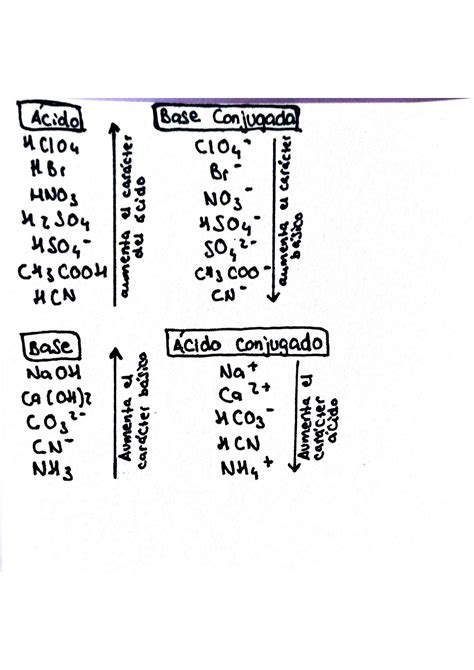 Ácido
HClO4
HBr
HNO3
H2SO4
HSO4⁻
CH3COOH
HCN
aumenta el carácter
del ácido
Base Conjugada
ClO4⁻
Br⁻
NO3⁻
HSO4⁻
SO4²⁻
CH3COO⁻
CN⁻
aumenta el carácter
básico
Base
NaOH
Ca(OH)2
CO3²⁻
CN⁻
NH3
Aumenta el
carácter básico
Ácido Conjugado
Na⁺
Ca²⁺
HCO3⁻
HCN
NH4⁺
Aumenta el
carácter
ácido